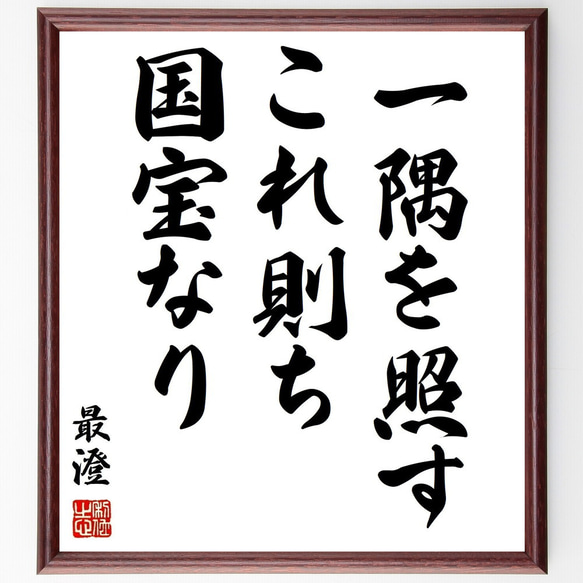 一隅を照す
これ則ち
国宝なり
最澄